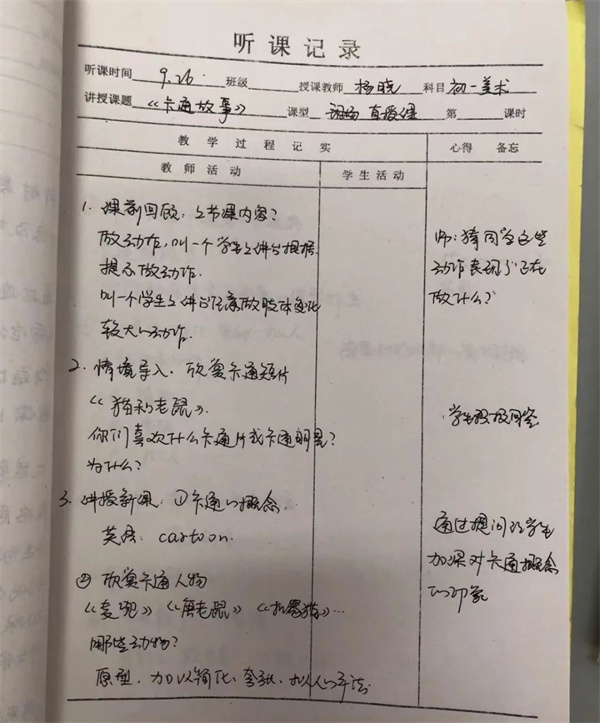 听课记录
听课时间 9.26. 班级 授课教师 杨晓 科目 初一美术
讲授课题 《卡通故事》 课型 现场直授课 第 课时
教学过程记实 心得 备忘
教师活动 学生活动
1. 课前回顾,上节课内容?
做动作,叫一个学生上讲台根据
提示做动作.
叫一个学生上讲台任意做肢体变化
较大的动作.
师:猜同学这些
动作表现了正在
做什么?
2. 情境导入. 欣赏卡通短片
《猫和老鼠》.
你们喜欢什么卡通片或卡通明星?
为什么?
学生积极回答
3. 讲授新课. ①卡通的概念.
英语: cartoon.
通过提问让学生
加深对卡通概念
的印象
② 欣赏卡通人物
《变形》《米老鼠》《加菲猫》…
哪些动物?
原型,加以简化、夸张、拟人的手法.